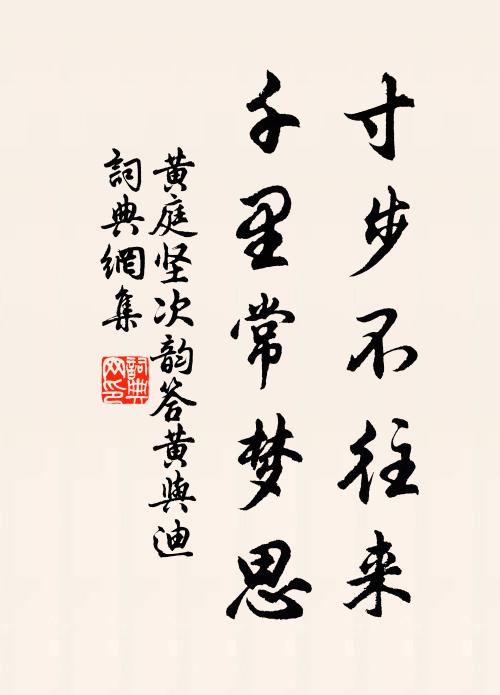 寸步不往来
千里常梦思
黄庭坚次韵答黄與迪
詞典網集
詞典网印